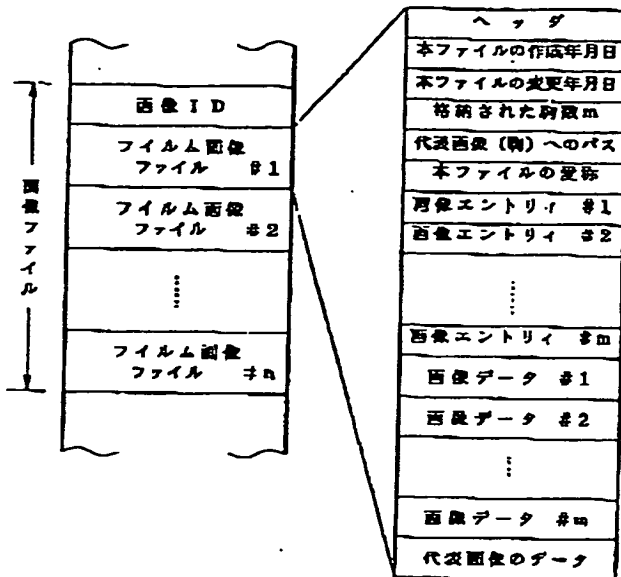 画像ファイル
画像ID
フイルム画像
ファイル #1
フイルム画像
ファイル #2
フイルム画像
ファイル #n
ヘッダ
本ファイルの作成年月日
本ファイルの変更年月日
格納された駒数m
代表画像(駒)へのパス
本ファイルの愛称
画像エントリィ #1
画像エントリィ #2
画像エントリィ #m
画像データ #1
画像データ #2
画像データ #m
代表画像のデータ